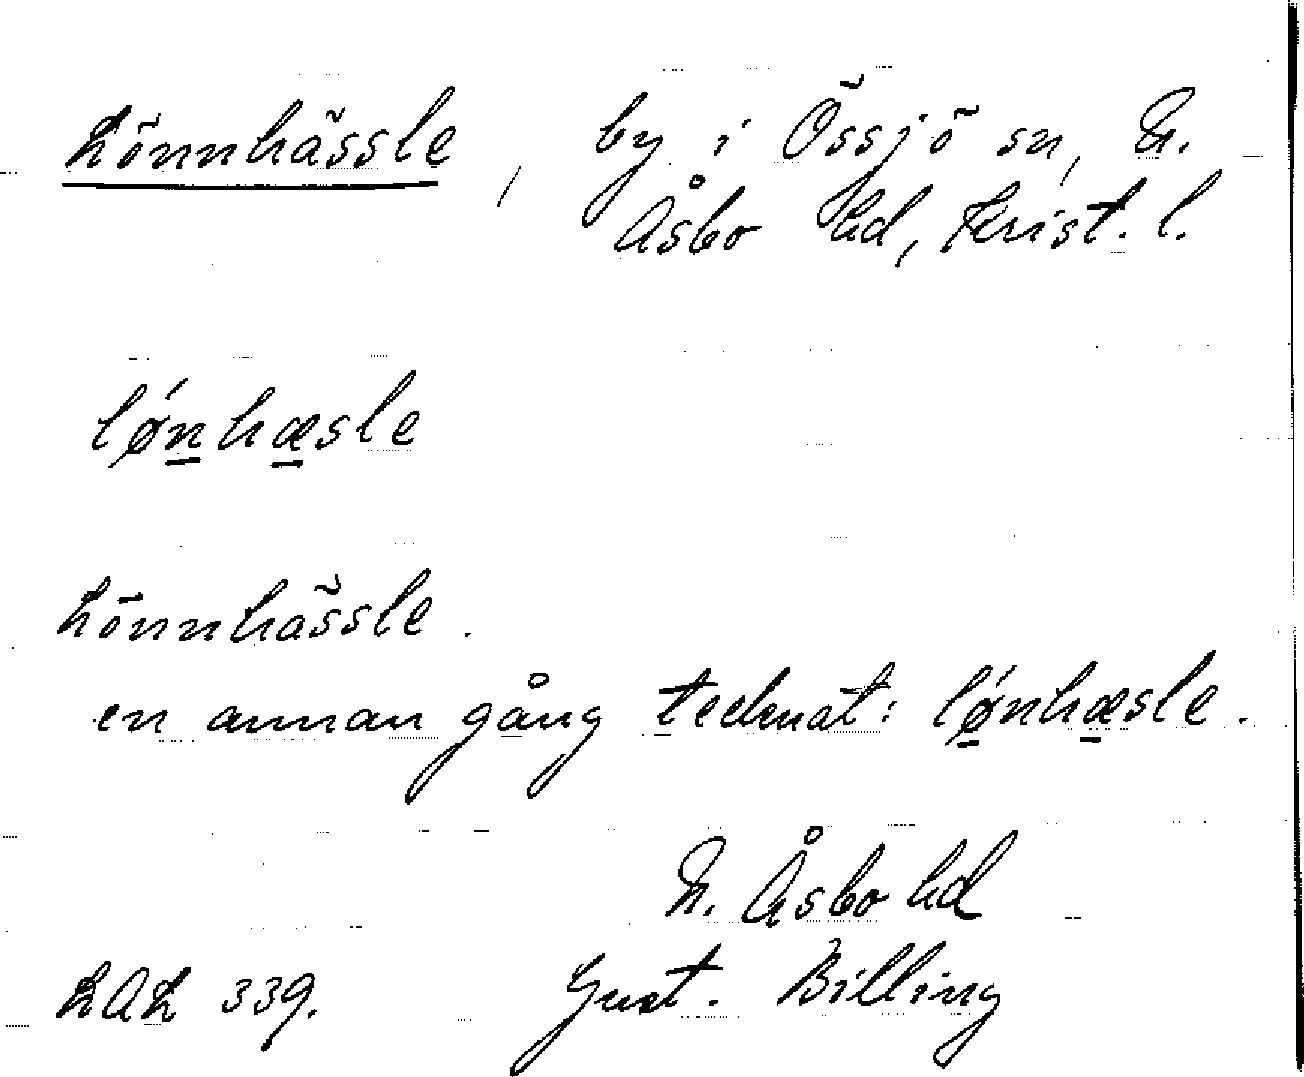 Lönnhässle, by i Össjö sn, N.
Åsbo hd, Krist. l.
lǿn̲hæ̲sle
Lönnhässle.
en annan gång tecknat: lǿ̲nhæ̲sle.
N. Åsbo hd
LAL 339. Gust. Billing